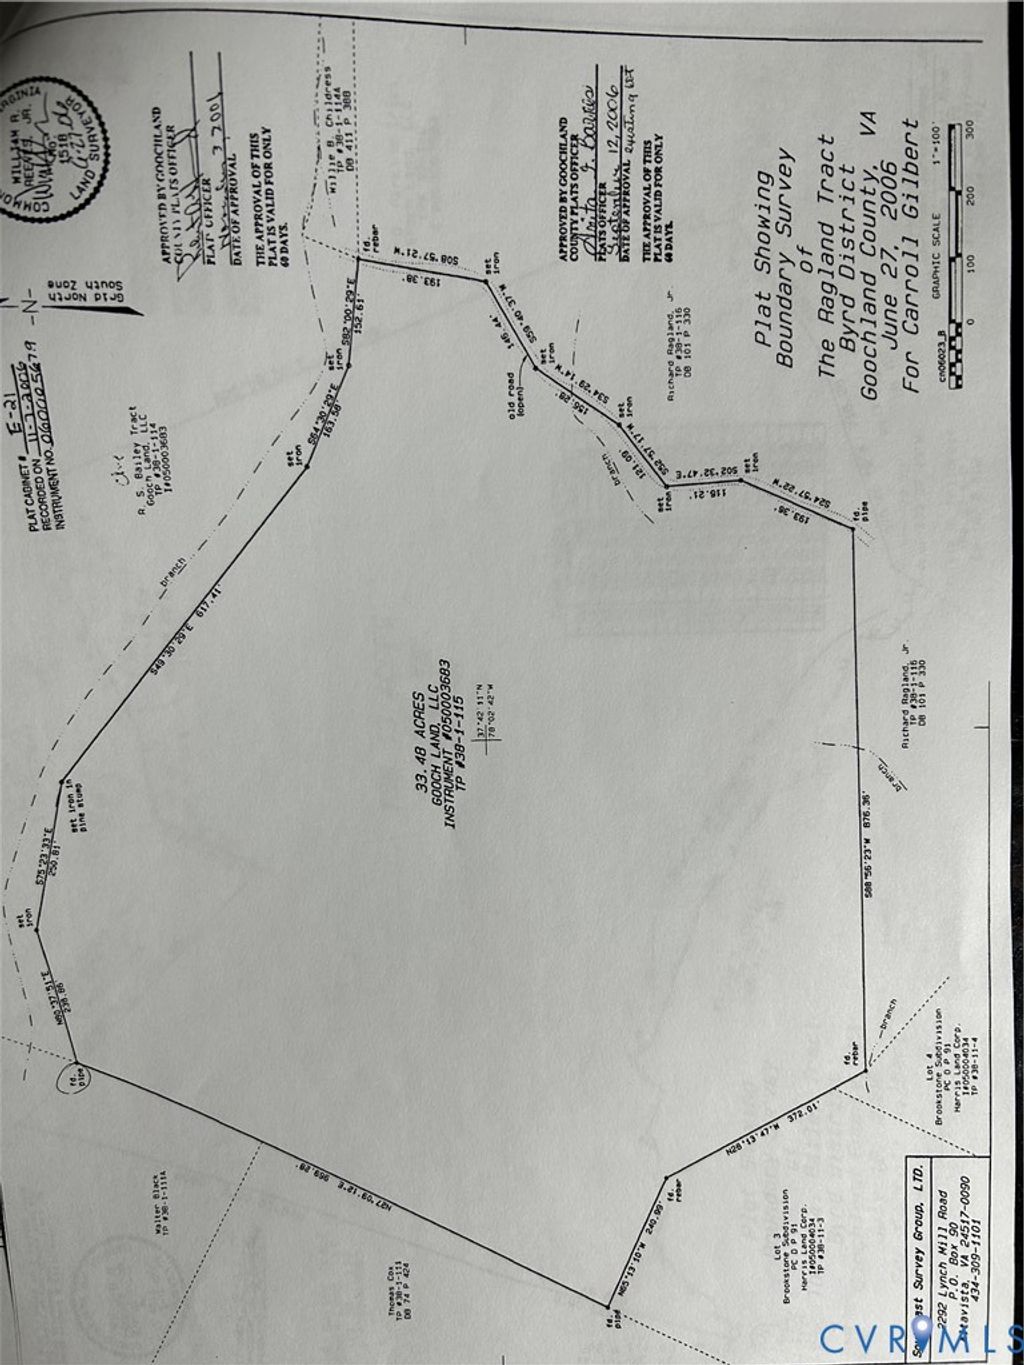 Plat Showing
Boundary Survey
of
The Ragland Tract
Byrd District
Goochland County, VA
June 27, 2006
For Carroll Gilbert
GRAPHIC SCALE 1"=100'
0 100 200 300
cn06023_B
WILLIAM R.
JR.
1518
LAND SURVEYOR
PLAT CABINET# E-21
RECORDED ON 11-7-2006
INSTRUMENT NO. 0600005679
-N-
Grid North
South Zone
APPROVED BY GOOCHLAND
COUNTY PLATS OFFICER
PLAT OFFICER
DATE OF APPROVAL
THE APPROVAL OF THIS
PLAT IS VALID FOR ONLY
60 DAYS.
Willie B. Childress
TP #38-1-114A
DB 411 P 388
APPROVED BY GOOCHLAND
COUNTY PLATS OFFICER
PLATS OFFICER
September 12, 2006
DATE OF APPROVAL
THE APPROVAL OF THIS
PLAT IS VALID FOR ONLY
60 DAYS.
R. S. Bailey Tract
Gooch Land, LLC
TP #38-1-114
I#050003683
fd.
rebar
S08°57'21"W
193.38'
set
iron
S59°40'37"W
146.44'
set
iron
old road
(open)
S34°29'14"W
155.28'
set
iron
S52°57'17"W
121.09'
branch
set
iron
S02°32'47"E
116.21'
set
iron
S24°57'22"W
193.36'
fd.
pipe
Richard Ragland, Jr.
TP #38-1-116
DB 101 P 330
S82°00'29"E
152.61'
set
iron
S64°30'29"E
163.58'
set
iron
S49°30'29"E 617.41'
branch
set iron in
pine stump
S75°23'33"E
250.81'
set
iron
N80°37'51"E
238.86'
fd.
pipe
33.48 ACRES
GOOCH LAND, LLC
INSTRUMENT #050003683
TP #38-1-115
37°42'11"N
78°02'42"W
Richard Ragland, Jr.
TP #38-1-116
DB 101 P 330
branch
S88°56'23"W 876.36'
fd.
rebar
branch
N28°13'47"W 372.01'
fd.
rebar
N65°13'10"W 240.99'
fd.
pipe
N27°09'12"E 969.28'
Walter Black
TP #38-1-111A
Thomas Cox
TP #38-1-111
DB 74 P 424
Lot 3
Brookstone Subdivision
PC D P 91
Harris Land Corp.
I#050004034
TP #38-11-3
Lot 4
Brookstone Subdivision
PC D P 91
Harris Land Corp.
I#050004034
TP #38-11-4
Survey Group, LTD.
2292 Lynch Mill Road
P.O. Box 90
Altavista, VA 24517-0090
434-309-1101
CVR MLS